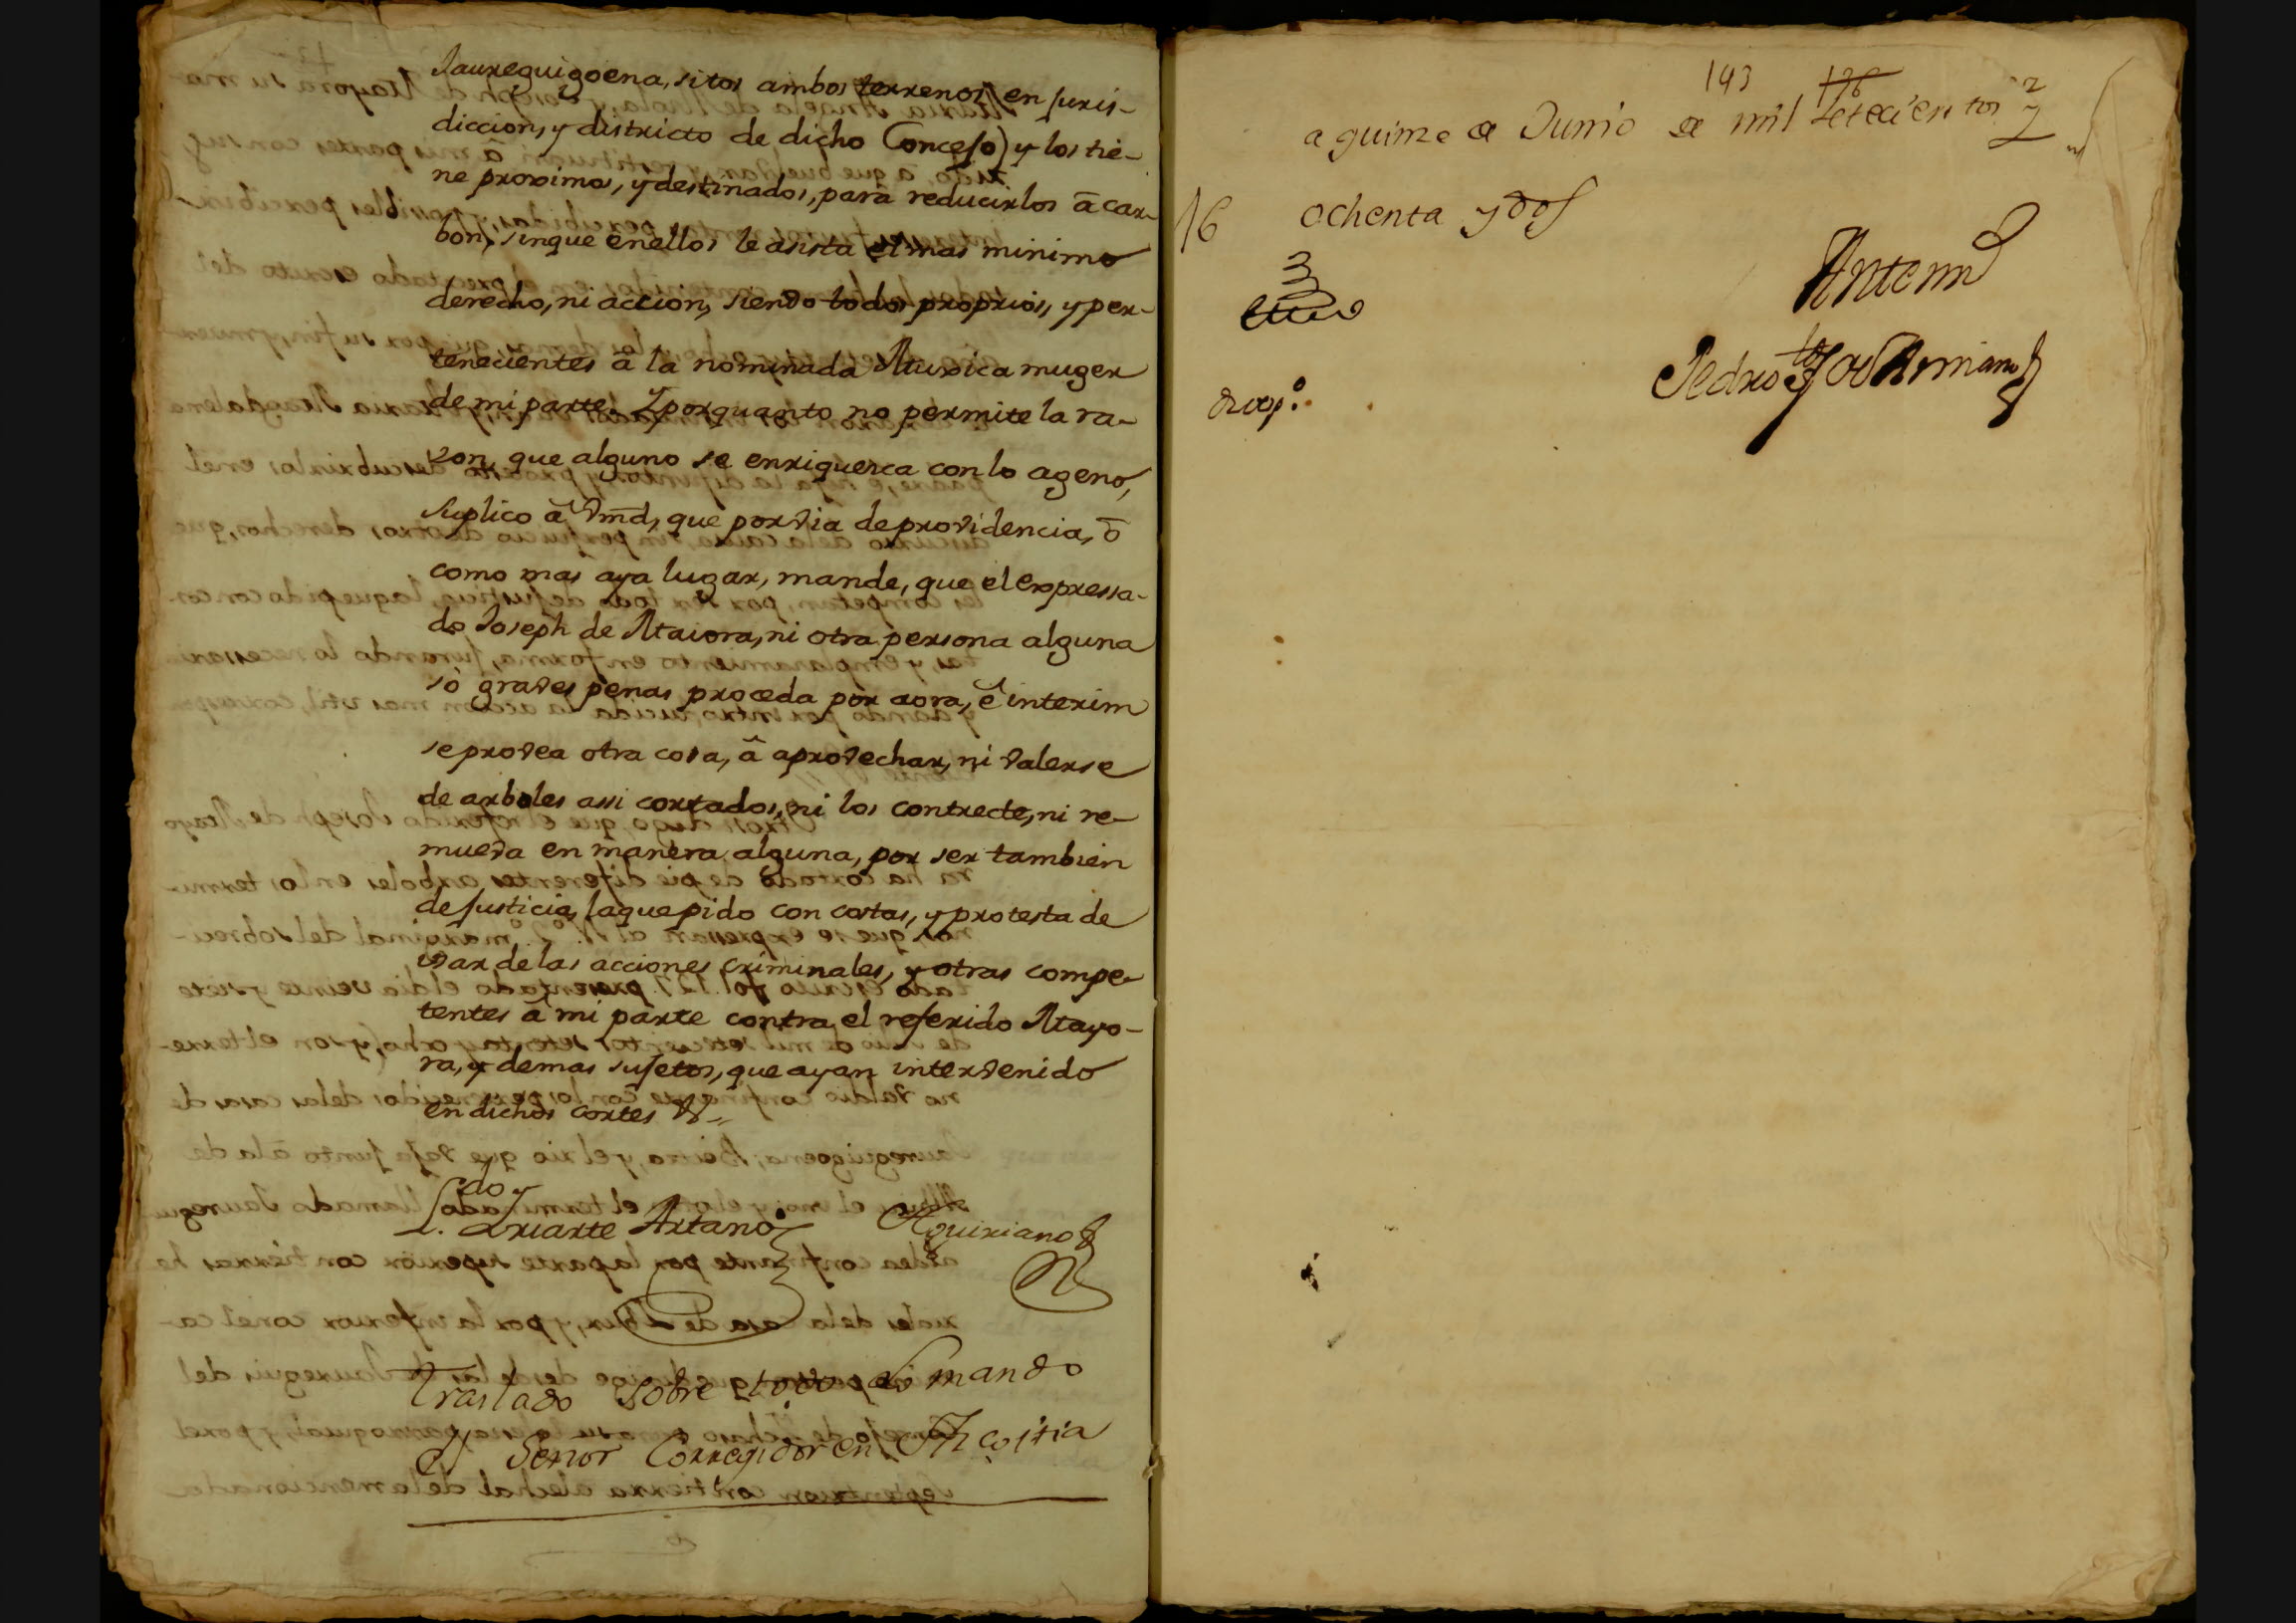 Jaureguigoena, sitos ambos terrenos en juris-
diccion, y districto de dicho Concejo) y los tie-
ne proximos, y destinados, para reducirlos â car-
bon, sinque enellos le asista el mas minimo
derecho, ni accion, siendo todos proprios, y per-
tenecientes â la nominada Muxica muger
de mi parte. Y porquanto no permite la ra-
zon, que alguno se enriquezca con lo ageno,
Suplico â Vmd, que por via de providencia, ô
como mas aya lugar, mande, que el expressa-
do Joseph de Maiora, ni otra persona alguna
sò graves penas proceda por aora, ê interim
se provea otra cosa, â aprovechar, ni valerse
de arboles assi cortados, ni los contrecte, ni re-
mueva en manera alguna, por ser tambien
de Justicia, laque pido con costas, y protesta de
usar de las acciones criminales, y otras compe-
tentes â mi parte contra el referido Mayo-
ra, y demas sujetos, que ayan intervenido
en dichos cortes &
Ldo Yriarte Artano Aquiriano
Traslado sobre todo lo mando
el Señor Corregidor en Azcoitia
143 136
a quinze de Junio de mil setecientos y
16 ochenta y dos
Antemi
Pedro Jph de Arriano